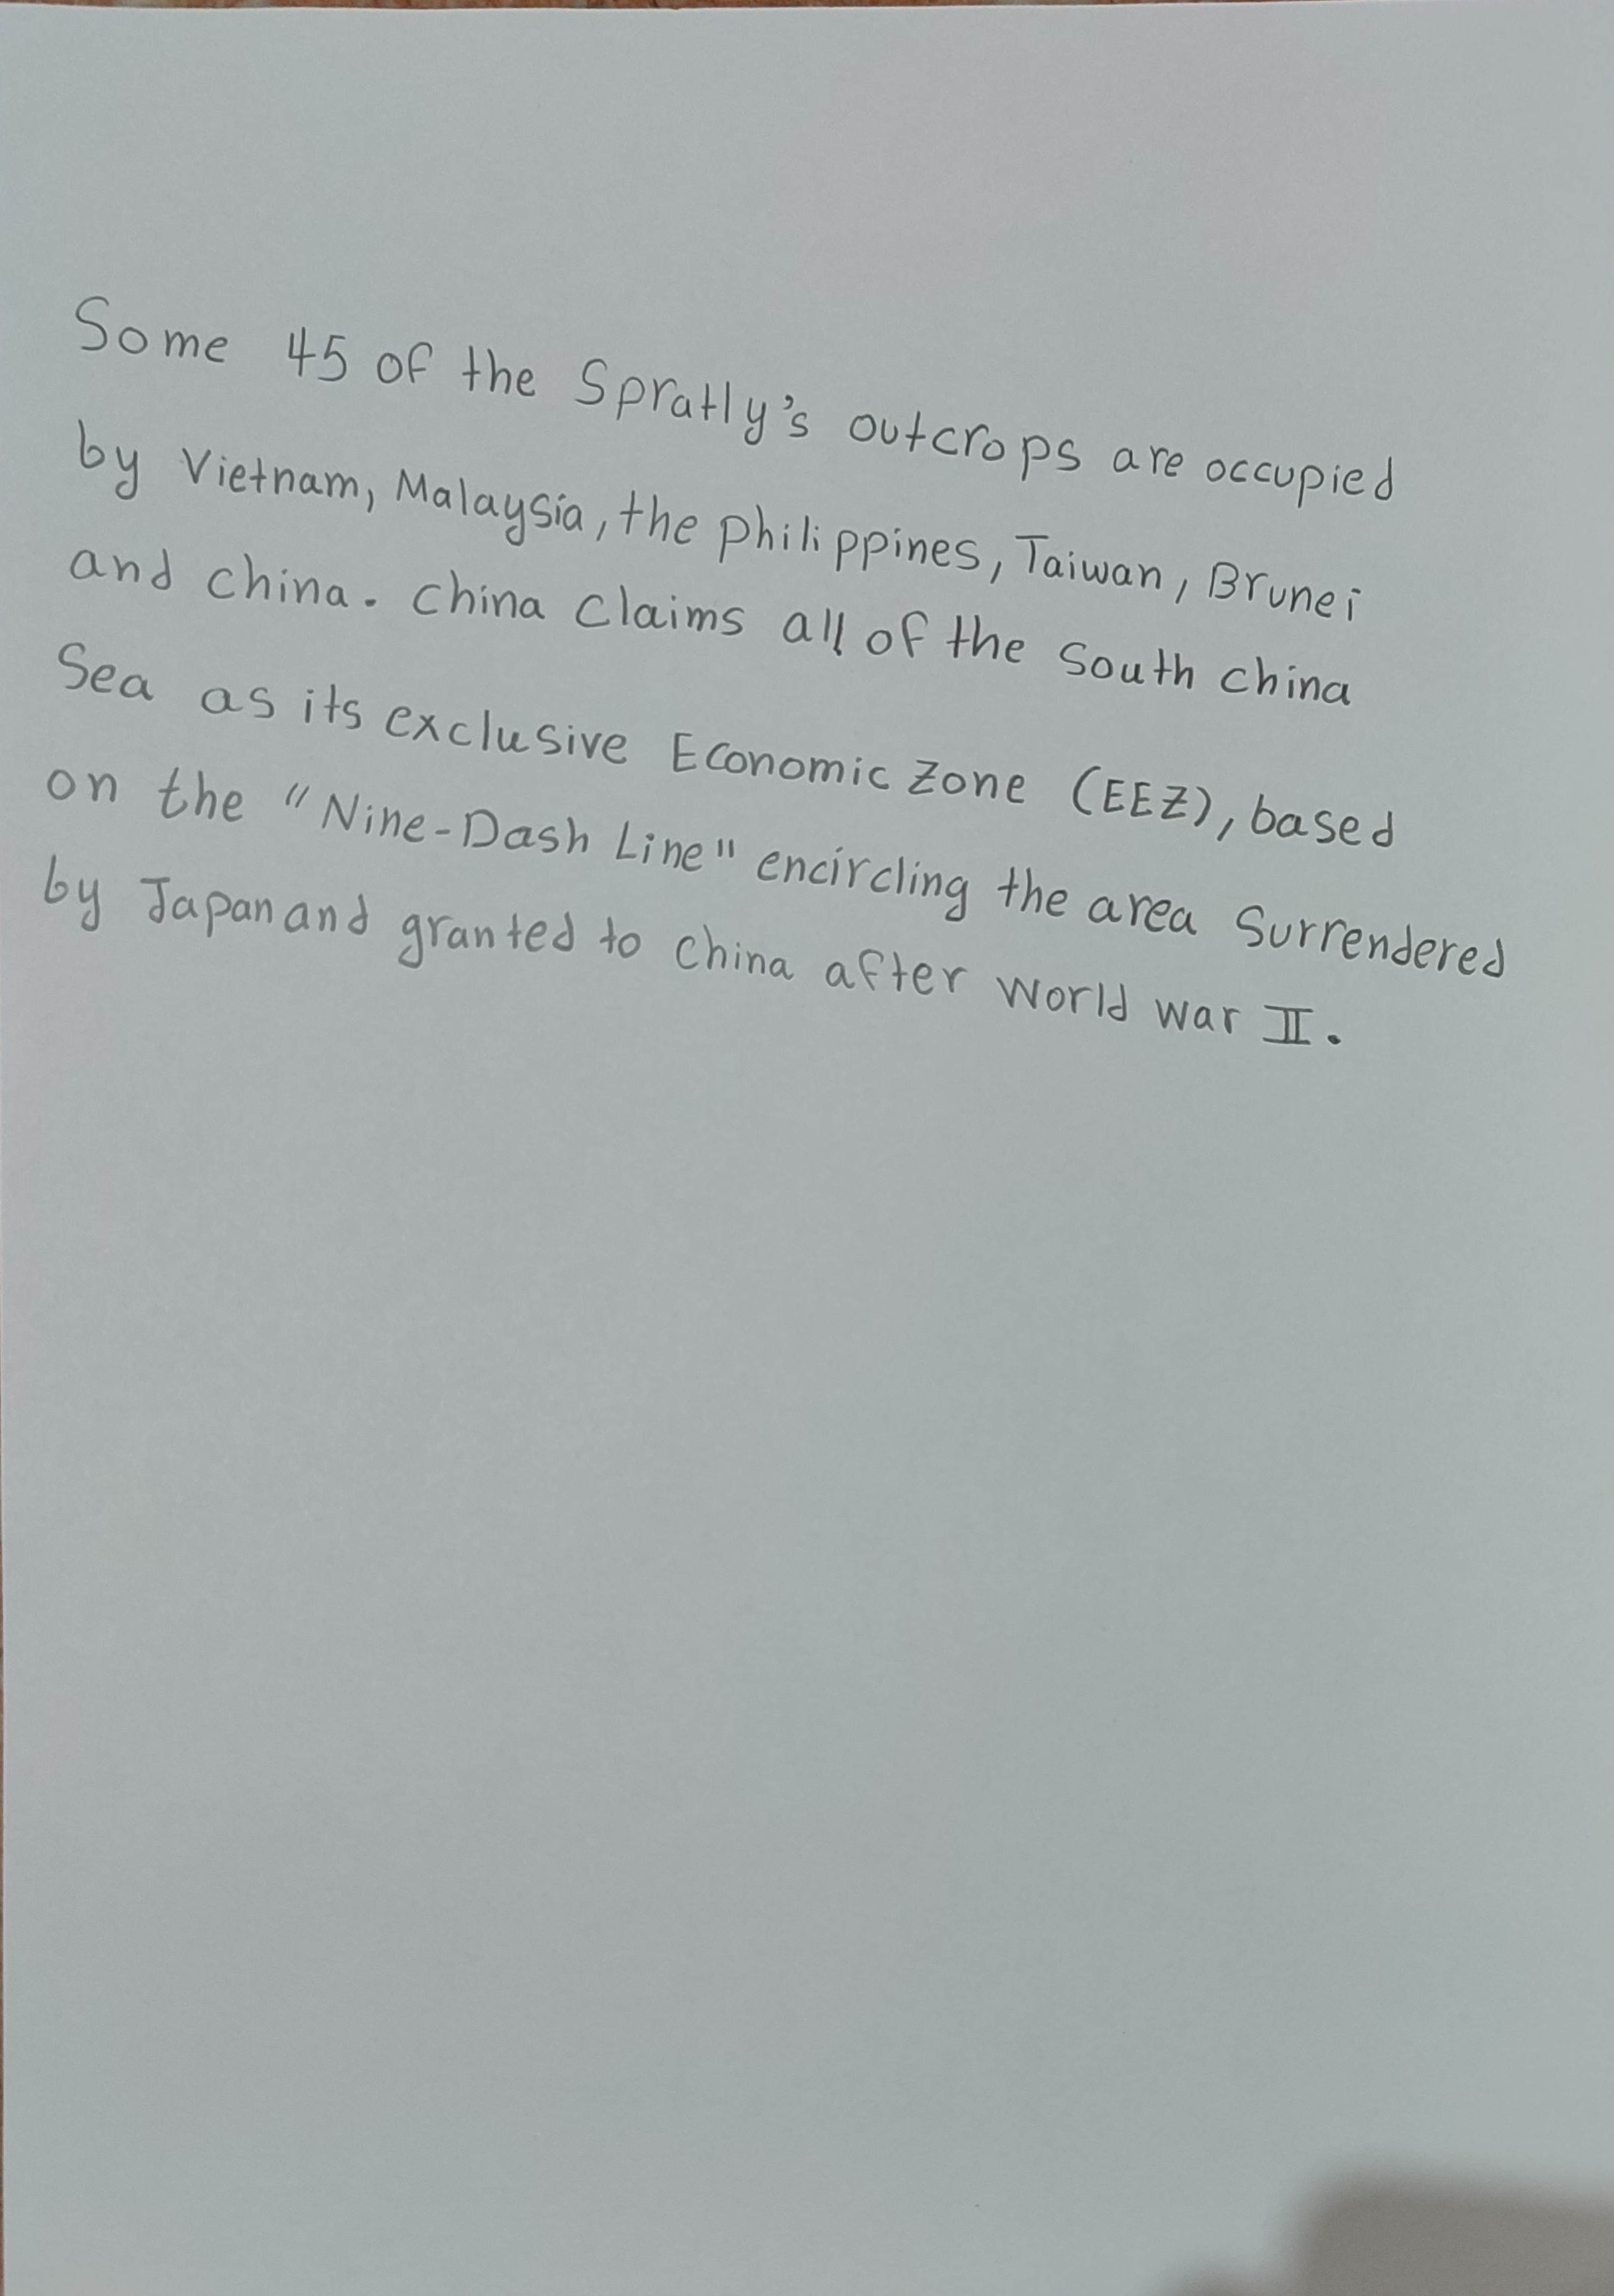 Some 45 of the Spratly's outcrops are occupied
by Vietnam, Malaysia, the philippines, Taiwan, Brunei
and china. china claims all of the south china
Sea as its exclusive Economic Zone (EEZ), based
on the "Nine-Dash Line" encircling the area surrendered
by Japan and granted to china after world war II.